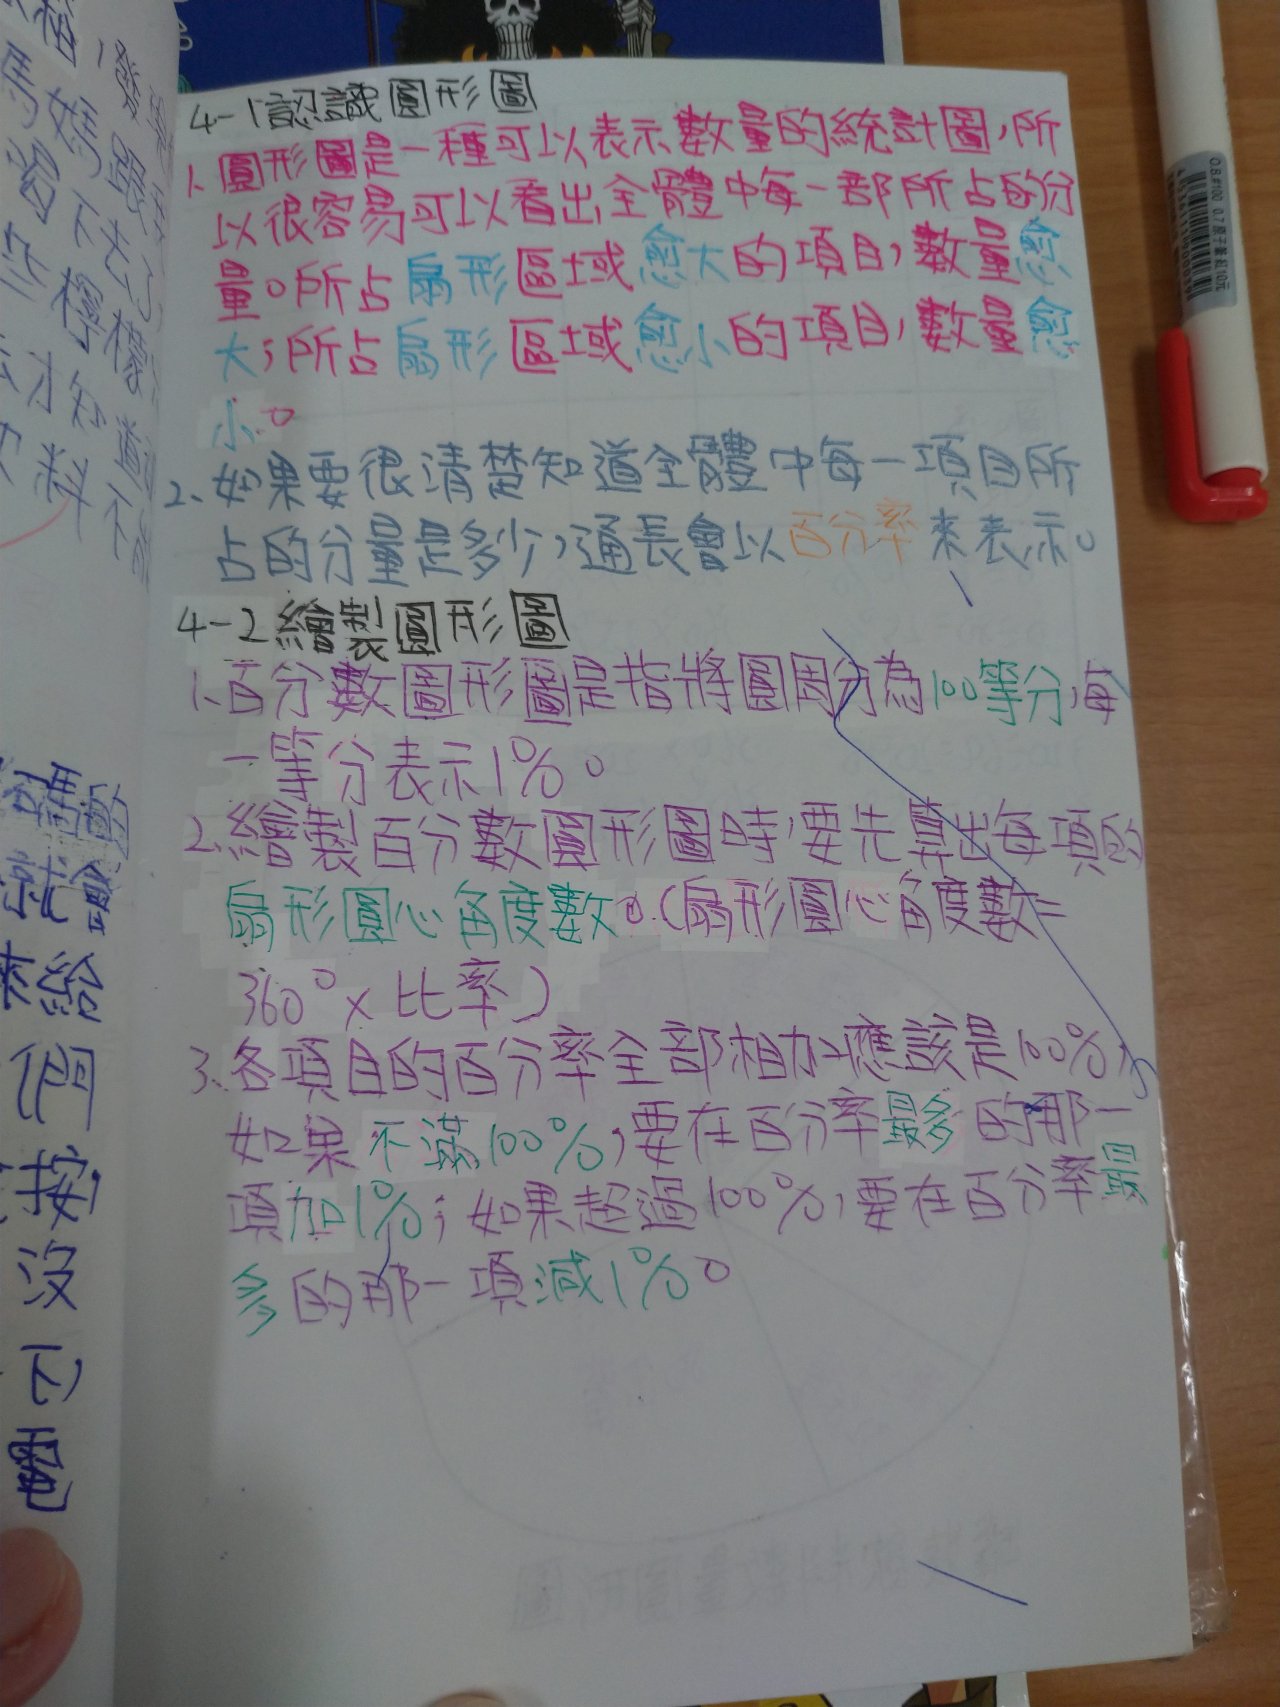 4-1認識圓形圖
1、圓形圖是一種可以表示數量的統計圖,所
以很容易可以看出全體中每一部所占的分
量。所占扇形區域愈大的項目,數量愈
大;所占扇形區域愈小的項目,數量愈
小。
2、如果要很清楚知道全體中每一項目所
占的分量是多少,通長會以百分率來表示。
4-2繪製圓形圖
1、百分數圓形圖是指將圓周分為100等分,每
一等分表示1%。
2、繪製百分數圓形圖時,要先算出每項的
扇形圓心角度數。(扇形圓心角度數=
360°×比率)
3、各項目的百分率全部相加應該是100%,
如果不滿100%,要在百分率最多的那一
項加1%;如果超過100%,要在百分率最
多的那一項減1%。
就
來給
們
按
沒
下
電
0.8#100 0.7原子筆紅10元